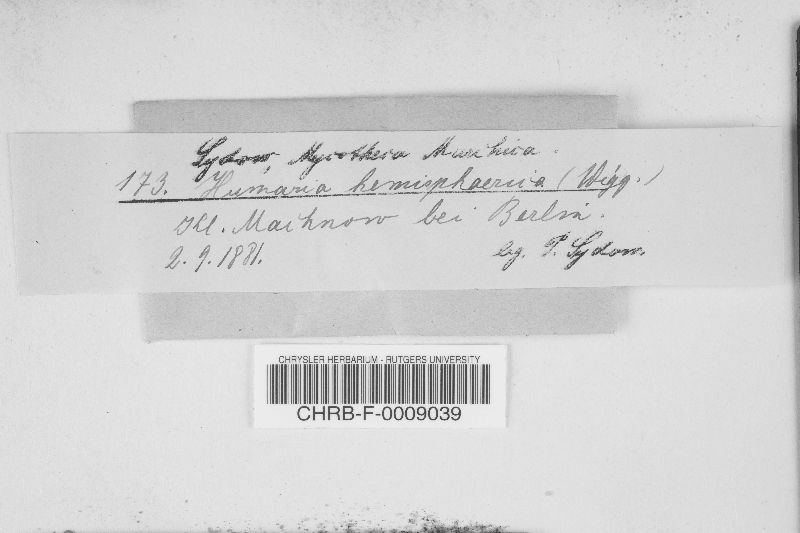 Sydow, Mycotheca Marchica.
173. Humaria hemisphaerica (Wigg.)
Kl. Machnow bei Berlin.
2.9.1881. leg. P. Sydow.
CHRYSLER HERBARIUM - RUTGERS UNIVERSITY
CHRB-F-0009039